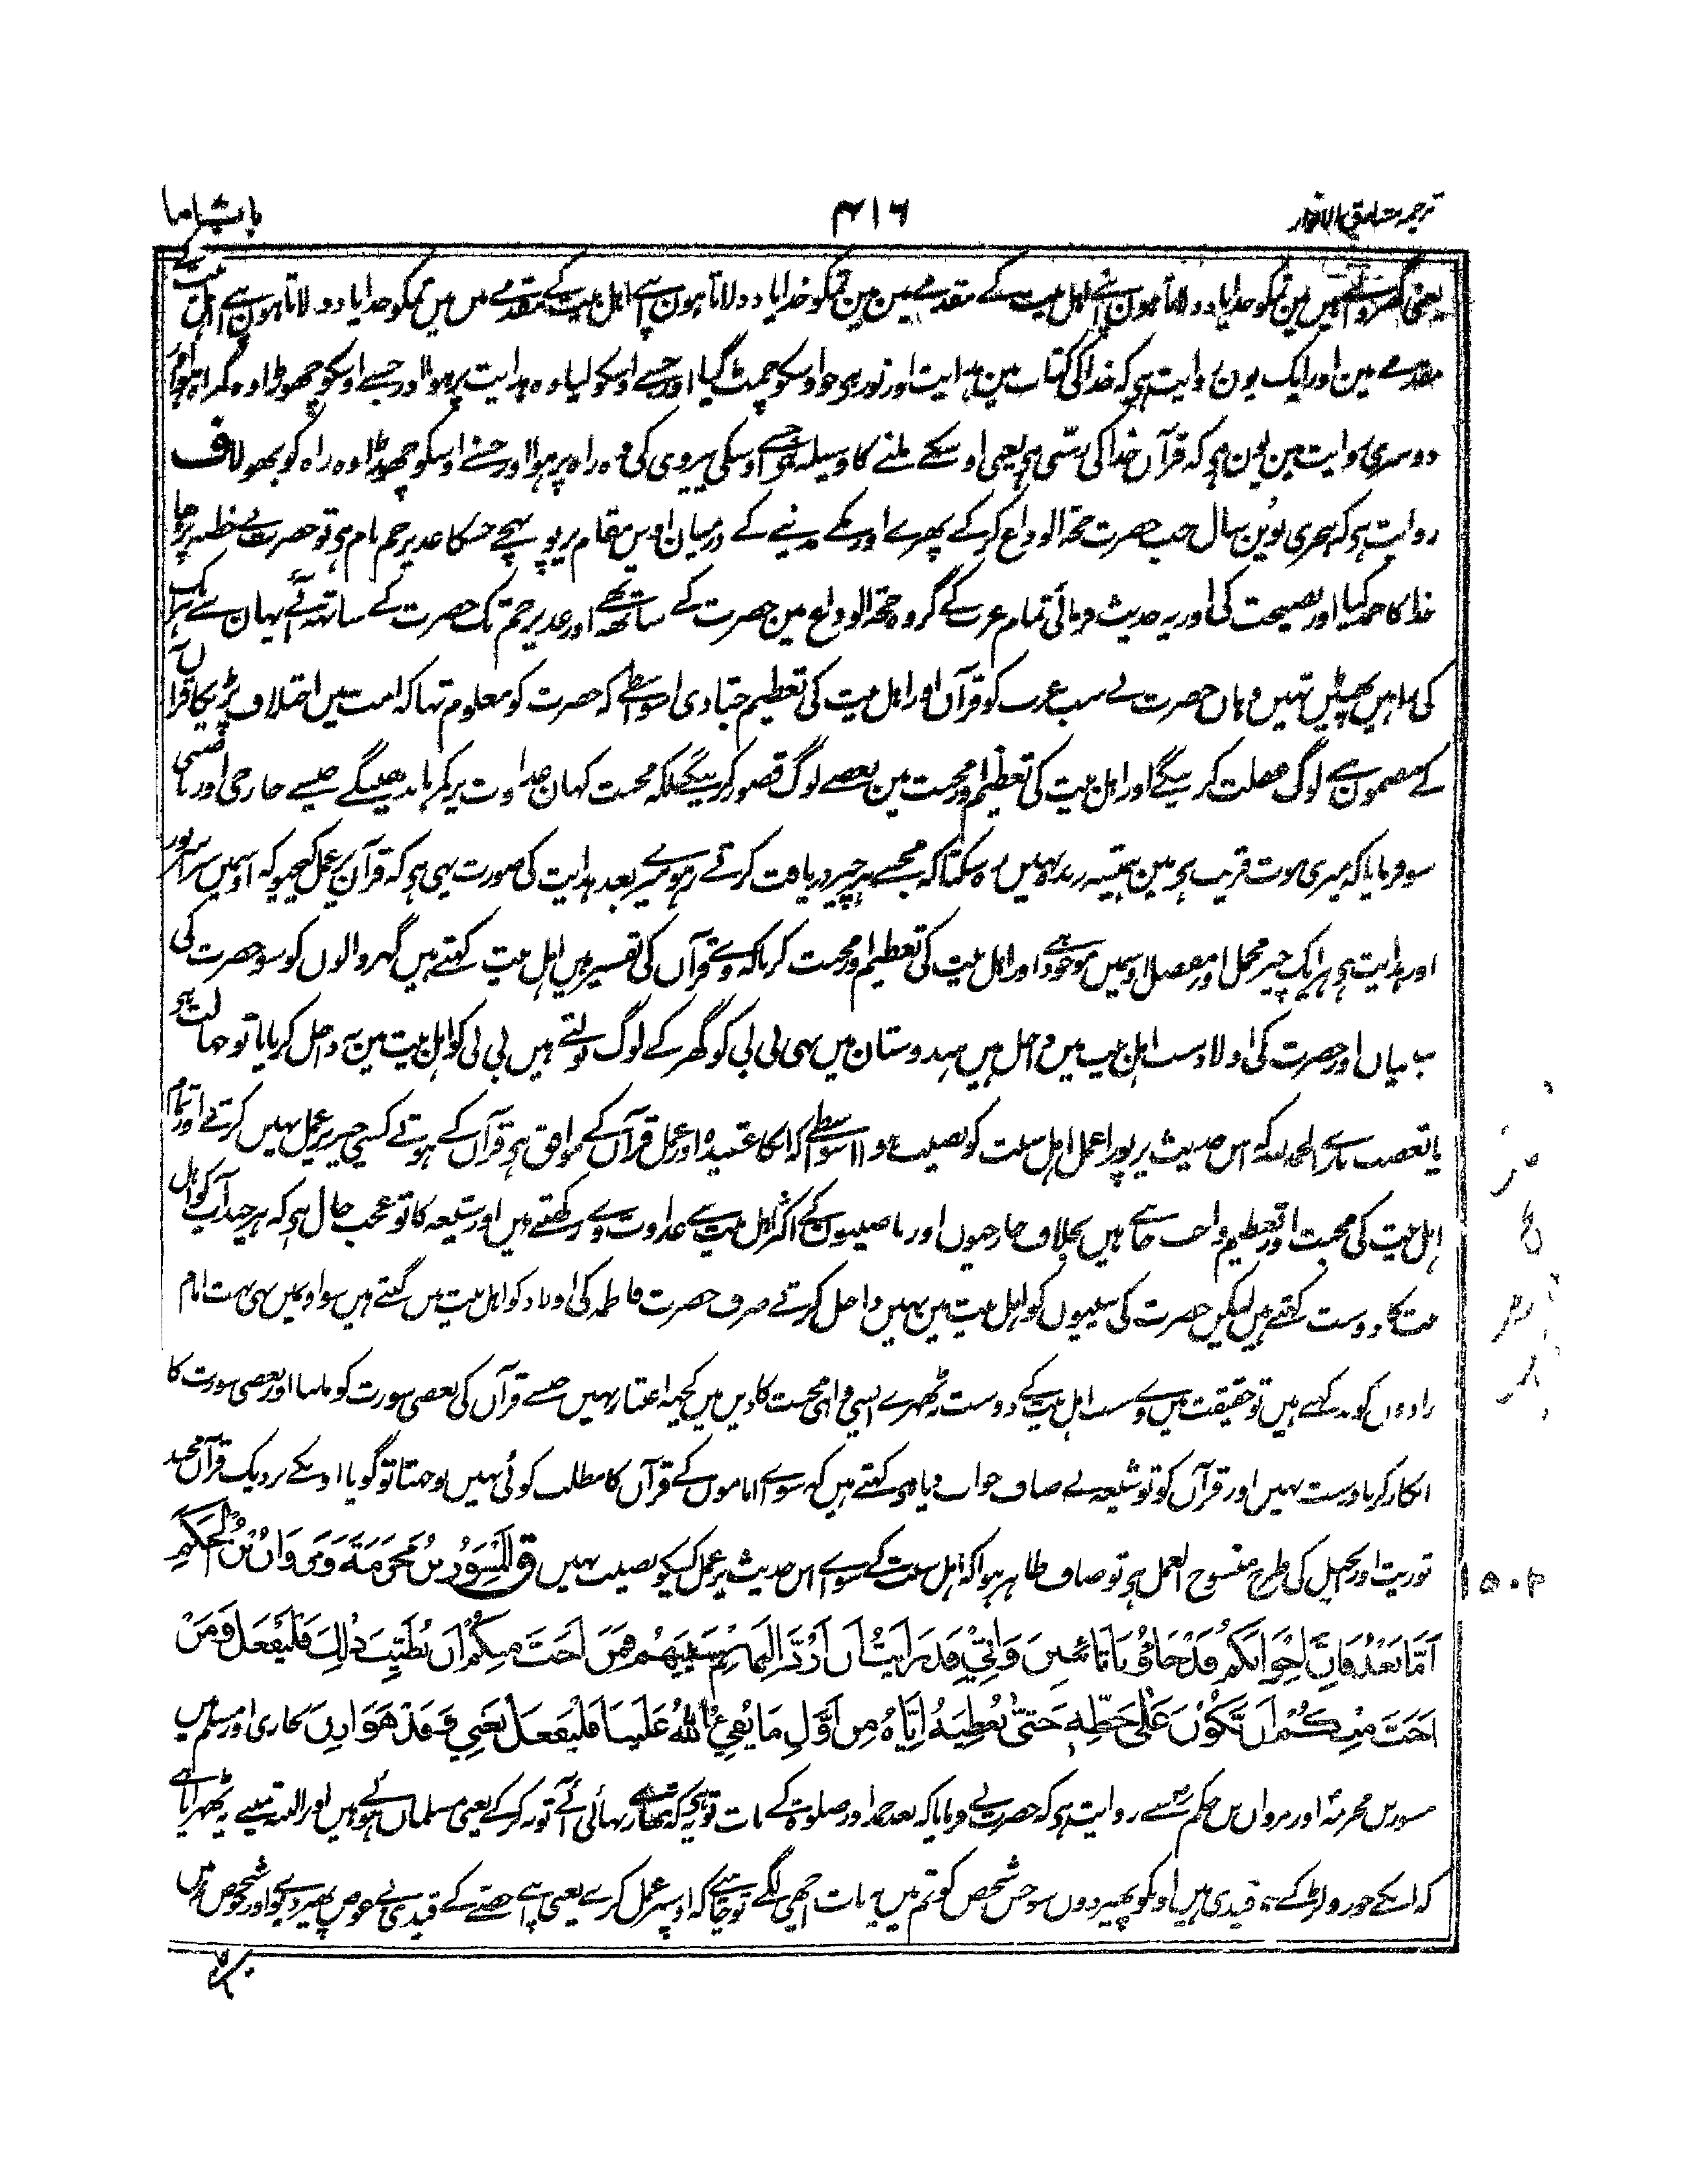 ترجمہ مشارق الانوار
۴۱۶
باب
یعنی گھر والے ہیں مین تمکو خدا یاد دلاتا ہون اپنے اہل بیت کے مقدمے مین مین تمکو خدا یاد دلاتا ہون اپنے اہل بیت کے مقدمے میں میں تمکو خدا یاد دلاتا ہون اپنے اہل بیت کے
مقدمے مین اور ایک یون روایت ہی کہ خدا کی کتاب مین ہدایت اور نور ہی جو اوسکو چمٹ گیا اور جسنے اوسکو لیا وہ ہدایت پر ہوا اور جسنے اوسکو چھوڑا وہ گمراہ ہوا اور
دوسری روایت مین یون ہی کہ قرآن خدا کی رسّی ہی یعنی اوسکے ملنے کا وسیلہ ہی جسنے اوسکی پیروی کی وہ راہ پر ہوا اور جسنے اوسکو چھوڑا وہ راہ کو بھولا ف
روایت ہی کہ ہجری نوین سال جب حضرت حجۃ الوداع کرکے پھرے اور مکے مدینے کے درمیان اوس مقام پر پہونچے جسکا غدیر خم نام ہی تو حضرت نے خطبہ پڑھا
خدا کا حمد کیا اور نصیحت کی اور یہ حدیث فرمائی تمام عرب کے گروہ حجۃ الوداع مین حضرت کے ساتھ تھے اور غدیر خم تک حضرت کے ساتھہ آئے یہان سے ہر ایک
کی راہیں پھٹیں تہیں وہاں حضرت نے سب عرب کو قرآن اور اہل بیت کی تعظیم جتا دی اسواسطے کہ حضرت کو معلوم تھا کہ امت میں اختلاف پڑیگا قرآن
کے مضمون سے لوگ غفلت کرینگے اور اہل بیت کی تعظیم اور محبت مین بعضے لوگ قصور کرینگے بلکہ محبت کہان عداوت پر کمر باندھینگے جیسے خارجی اور ناصبی
سو فرمایا کہ میری موت قریب ہی مین ہمیشہ زندہ نہیں رہ سکتا کہ مجھسے ہر چیز دریافت کرتے رہو میرے بعد ہدایت کی صورت یہی ہی کہ قرآن پر عمل کیجیو کہ اوسمیں سراسر نور
اور ہدایت ہی ہر ایک چیز مجمل اور مفصل اوسمیں موجود ہی اور اہل بیت کی تعظیم اور محبت کرنا کہ وے قرآن کی تفسیر ہیں اہل بیت کہتے ہیں گہر والوں کو سو حضرت کی
بیبیاں اور حضرت کی اولاد سب اہل بیت میں داخل ہیں ہندوستان میں بھی بی بی کو گھر کے لوگ بولتے ہیں بی بی کو اہل بیت مین نہ داخل کرنا یا تو جہالت ہی
یا تعصب ہی الحمد للہ کہ اس حدیث پر پورا عمل اہل سنت کو نصیب ہوا اسواسطے کہ انکا عقیدہ اور عمل قرآن کے موافق ہی قرآن کے ہوتے کسی چیز پر عمل نہیں کرتے اور تمام
اہل بیت کی محبت اور تعظیم واجب جانتے ہیں بخلاف خارجیوں اور ناصبیون کے کہ اکثر اہل بیت سے عداوت وے رکھتے ہیں اور شیعہ کا تو عجب حال ہی کہ ہر چند آپکو اہل
بیت کا دوست کہتے ہیں لیکن حضرت کی بیبیوں کو اہل بیت مین نہیں داخل کرتے صرف حضرت فاطمہ کی اولاد کو اہل بیت میں گنتے ہیں سو اوسمیں بھی بہت امام
زادوں کو بد کہتے ہیں تو حقیقت میں وے سب اہل بیت کے دوست نہ ٹھہرے ایسی محبت کا دین میں کچھہ اعتبار نہیں جیسے قرآن کی بعضی سورت کو ماننا اور بعضی سورت کا
انکار کرنا درست نہیں اور قرآن کو تو شیعہ نے صاف جواب دیا ہی کہتے ہیں کہ سوے اماموں کے قرآن کا مطلب کوئی نہیں بوجھتا تو گویا اونکے نزدیک قرآن مجید
توریت اور انجیل کی طرح منسوخ العمل ہی تو صاف ظاہر ہوا کہ اہل سنت کے سوے اس حدیث پر عمل کسیکو نصیب نہیں ق الْمِسْوَرُ بْنُ مَخْرَمَةَ وَمَرْوَانُ بْنُ الْحَكَمِ
۱۵۰۲
اَمَّا بَعْدُ فَاِنَّ اِخْوَانَكُمْ قَدْ جَاؤُا نَا تَائِبِيْنَ وَاِنِّيْ قَدْ رَاَيْتُ اَنْ اَرُدَّ اِلَيْهِمْ سَبْيَهُمْ فَمَنْ اَحَبَّ مِنْكُمْ اَنْ يُطَيِّبَ ذٰلِكَ فَلْيَفْعَلْ وَمَنْ
اَحَبَّ مِنْكُمْ اَنْ يَّكُوْنَ عَلٰى حَظِّهٖ حَتّٰى نُعْطِيَهٗ اِيَّاهُ مِنْ اَوَّلِ مَا يُفِيْءُ اللّٰهُ عَلَيْنَا فَلْيَفْعَلْ يَعْنِيْ وَفْدَ هَوَازِنَ بخاری اور مسلم میں
مسور بن مخرمہ اور مروان بن حکم سے روایت ہی کہ حضرت نے فرمایا کہ بعد حمد اور صلوة کے بات تو یہ ہی کہ تمھارے بھائی آئے توبہ کرکے یعنی مسلماں ہوئے ہیں اور البتہ مینے یہ ٹھہرایا ہی
کہ اسکے جورو لڑکے جو قیدی ہیں اونکو پھیر دوں سو جس شخص کو تم میں یہ بات اچھی لگے تو چاہئے کہ اوسپر عمل کرے یعنی اپنے حصے کے قیدی بے عوض پھیر دیوے اور جو شخص تم میں